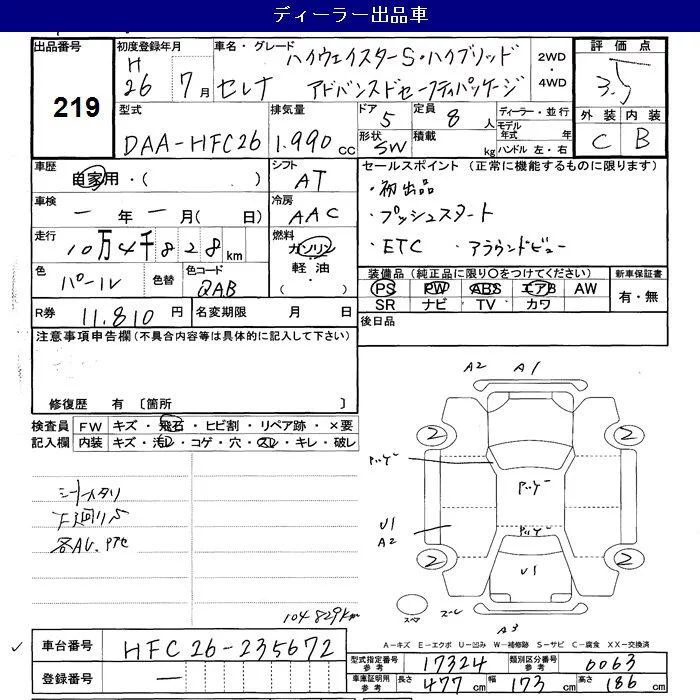 ディーラー出品車
出品番号
219
初度登録年月
H
26 7月
車名・グレード
ハイウェイスターS・ハイブリッド
セレナ アドバンスドセーフティパッケージ
2WD
・
4WD
評価点
3.5
外装 内装
C B
型式
DAA-HFC26
排気量
1.990 cc
ドア
5
定員
8 人
形状
SW
積載
kg
ディーラー・並行
モデル
年式 年
ハンドル 左・右
車歴
自家用・( )
シフト
AT
セールスポイント (正常に機能するものに限ります)
・初出品
・プッシュスタート
・ETC ・アラウンドビュー
車検
一 年 一 月( 日)
冷房
AAC
走行
10万4千828 km
燃料
ガソリン
軽油
・( )
色
パール
色替
色コード
QAB
装備品 (純正品に限り〇をつけてください)
新車保証書
有・無
PS PW ABS エアB AW
SR ナビ TV カワ
後日品
R券 11.810 円
名変期限 月 日
注意事項申告欄 (不具合内容等は具体的に記入して下さい)
修復歴 有 〔箇所 〕
検査員
記入欄
FW キズ・飛石・ヒビ割・リペア跡・×要
内装 キズ・汚レ・コゲ・穴・スレ・キレ・破レ
シートスタリ
下廻りS
各AU、
104829km
A2 A1
2 2
U1
A2
U1
2 2
スペア
A3
A-キズ E-エクボ U-凹み W-補修跡 S-サビ C-腐食 XX-交換済
車台番号 HFC26-235672
登録番号 一
型式指定番号
参考
17324
類別区分番号
参考
0063
車庫証明用
参考
長さ 477 cm 幅 173 cm 高さ 186 cm